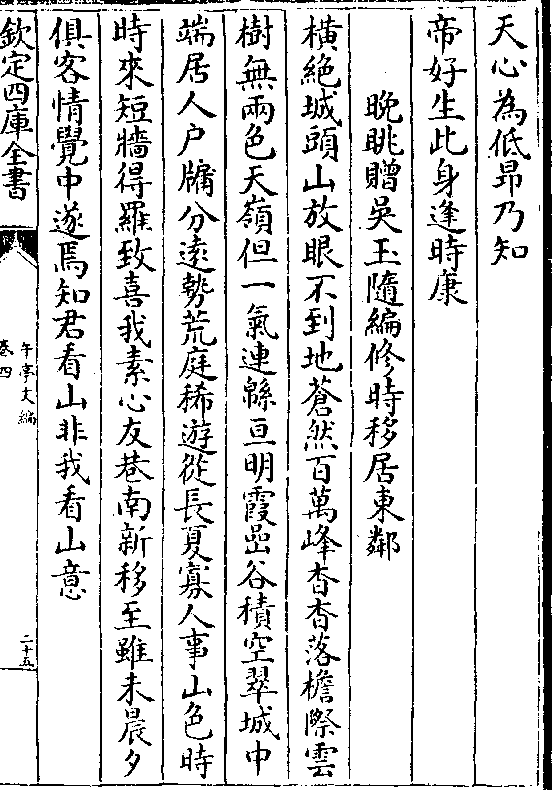 天心為低昂乃知
帝好生此身逢時康
晚眺贈吳玉隨編修時移居東鄰
橫絶城頭山放眼不到地蒼然百萬峰杳杳落檐際雲
樹無兩色天嶺但一氣連緜亘明霞壘谷積空翠城中
端居人户牖分遠勢荒庭稀遊從長夏寡人事山色時
時來短牆得羅致喜我素心友巷南新移至雖未晨夕
俱客情覺中遂焉知君看山非我看山意
欽定四庫全書
午亭文編
卷四
二十五